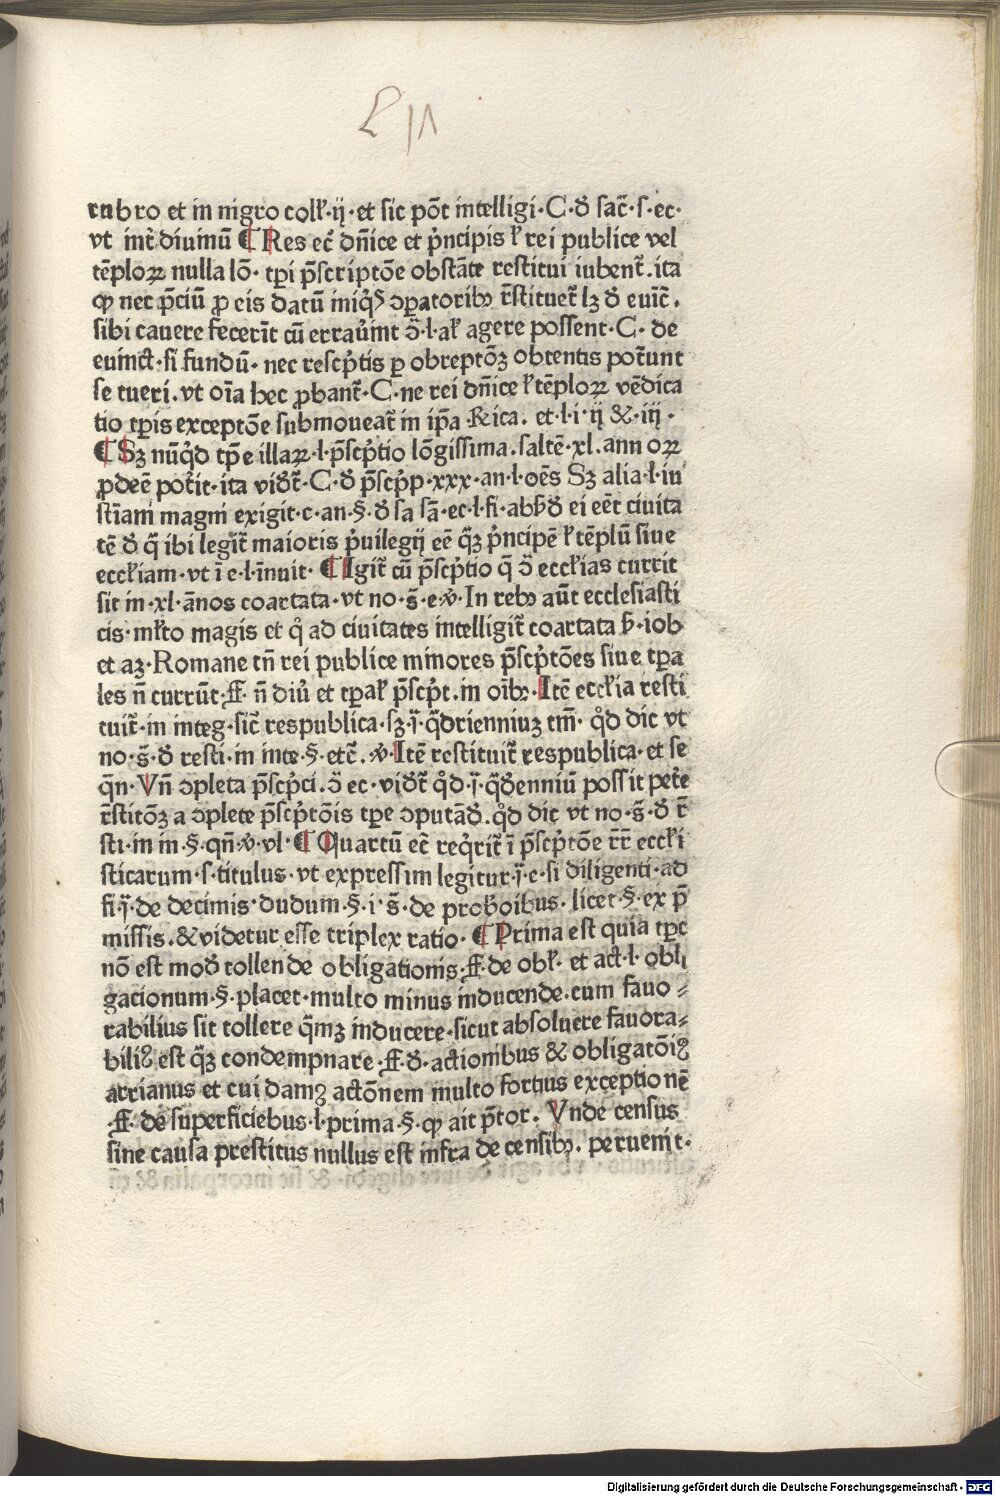 rubro et in nigro coll̃·ij·et sic põt intelligi·C·đ sac̃·s·ec·
vt int̃ diuinũ ¶ Res ec̃ dñice et p̃ncipis ł rei publice vel
tẽploꝝ nulla lõ· tp̱i p̃scriptõe obstãte restitui iubent̃·ita
ꝙ nec p̃ciũ ꝓ eis datũ iniq̃s ꝯparatoribꝫ r̃stituet̃ lꝫ đ euic̃·
sibi cauere fecerĩt cũ errauĩnt õ·l·al̃ agere possent·C· de
euinct·si fundũ· nec rescp̃tis ꝑ obreptõꝫ obtentis pot̃unt
se tueri·vt oĩa hec ꝓbant̃·C·ne rei dñice ł tẽploꝝ vẽdica
tio tp̱is exceptõe submoueat̃ in ip̃a Rica· et·l·i·ij &·iij·
¶ Sꝫ nũq̃d tp̱e illaꝝ·l·p̃scp̃tio lõgissima·saltẽ·xl·annoꝝ
ꝓdeẽ pot̃it·ita vidr̃·C·đ p̃scp̃p·xxx·an·l·oẽs Sꝫ alia·l·iu
stĩam magni exigit·c·an·§·đ sa sã·ec·l·fi·abhđ ei eẽt ciuita
tẽ đ q̃ ibi legit̃ maioris p̃uilegij eẽ q̃ꝫ p̃ncipẽ ł tẽplũ siue
eccl̃iam·vt ĩ e·l·ĩnuit· ¶ Igit̃ cũ p̃scp̃tio q̃ õ eccl̃ias currit
sit in·xl·ãnos coartata·vt no·s̃·e·ꝟ·In rebꝫ aũt ecclesiasti
cis·ml̃to magis et q̃ ad ciuitates intelligit̃ coartata ħ·iob
et aꝫ·Romane tñ rei publice minores p̃scp̃tões siue tp̱a
les ñ currũt·ff· ñ diũ et tp̱al̃ p̃scp̃t·in oĩbꝫ·Itẽ eccl̃ia resti
tuit̃·in integ·sic̃ respublica·sꝫ·ĩ·q̃drienniuꝫ tm̃· q̊d dic vt
no·s̃·đ resti·in inte·§·etc̃·ꝟ·Itẽ restituit̃ respublica·et se
q̃n·Vñ ꝯpleta p̃scp̃ci·õ ec·vidr̃ q̊d·ĩ·q̃đenniũ possit pet̃e
r̃stitõꝫ a ꝯplete p̃scp̃tõis tp̱e ꝯputãđ·q̊d dic vt no·s̃·đ r̃
sti·in in·§·qñ·ꝟ·vl· ¶ Quartũ ec̃ req̃rit̃ ĩ p̃scp̃tõe r̃r̃ eccl̃i
sticarum·s·titulus·vt expressim legitur·ĩ·e·si diligenti·ad
fi·ĩ·de decimis·dudum·§·i·s̃·de prohoibus·licet·§·ex p̃
missis·&videtur esse triplex ratio· ¶ Prima est quia tp̱c
nõ est mođ tollende obligationis·ff·de obl̃· et act·l·obli
gacionum·§·placet·multo minus inducende·cum fauo⸗
rabilius sit tollere q̃mꝫ inducere·sicut absoluere fauora⸗
biliꝰ est q̃ꝫ condempnare·ff·đ·actionibus & obligatõiꝰ
arrianus et cui damꝫ actõnem multo fortius exceptionẽ
·ff·de superficiebus·l·prima·§·ꝙ ait p̃tor· Vnde census
sine causa prestitus nullus est infra de censibꝫ·peruenit·
Digitalisierung gefördert durch die Deutsche Forschungsgemeinschaft - DFG